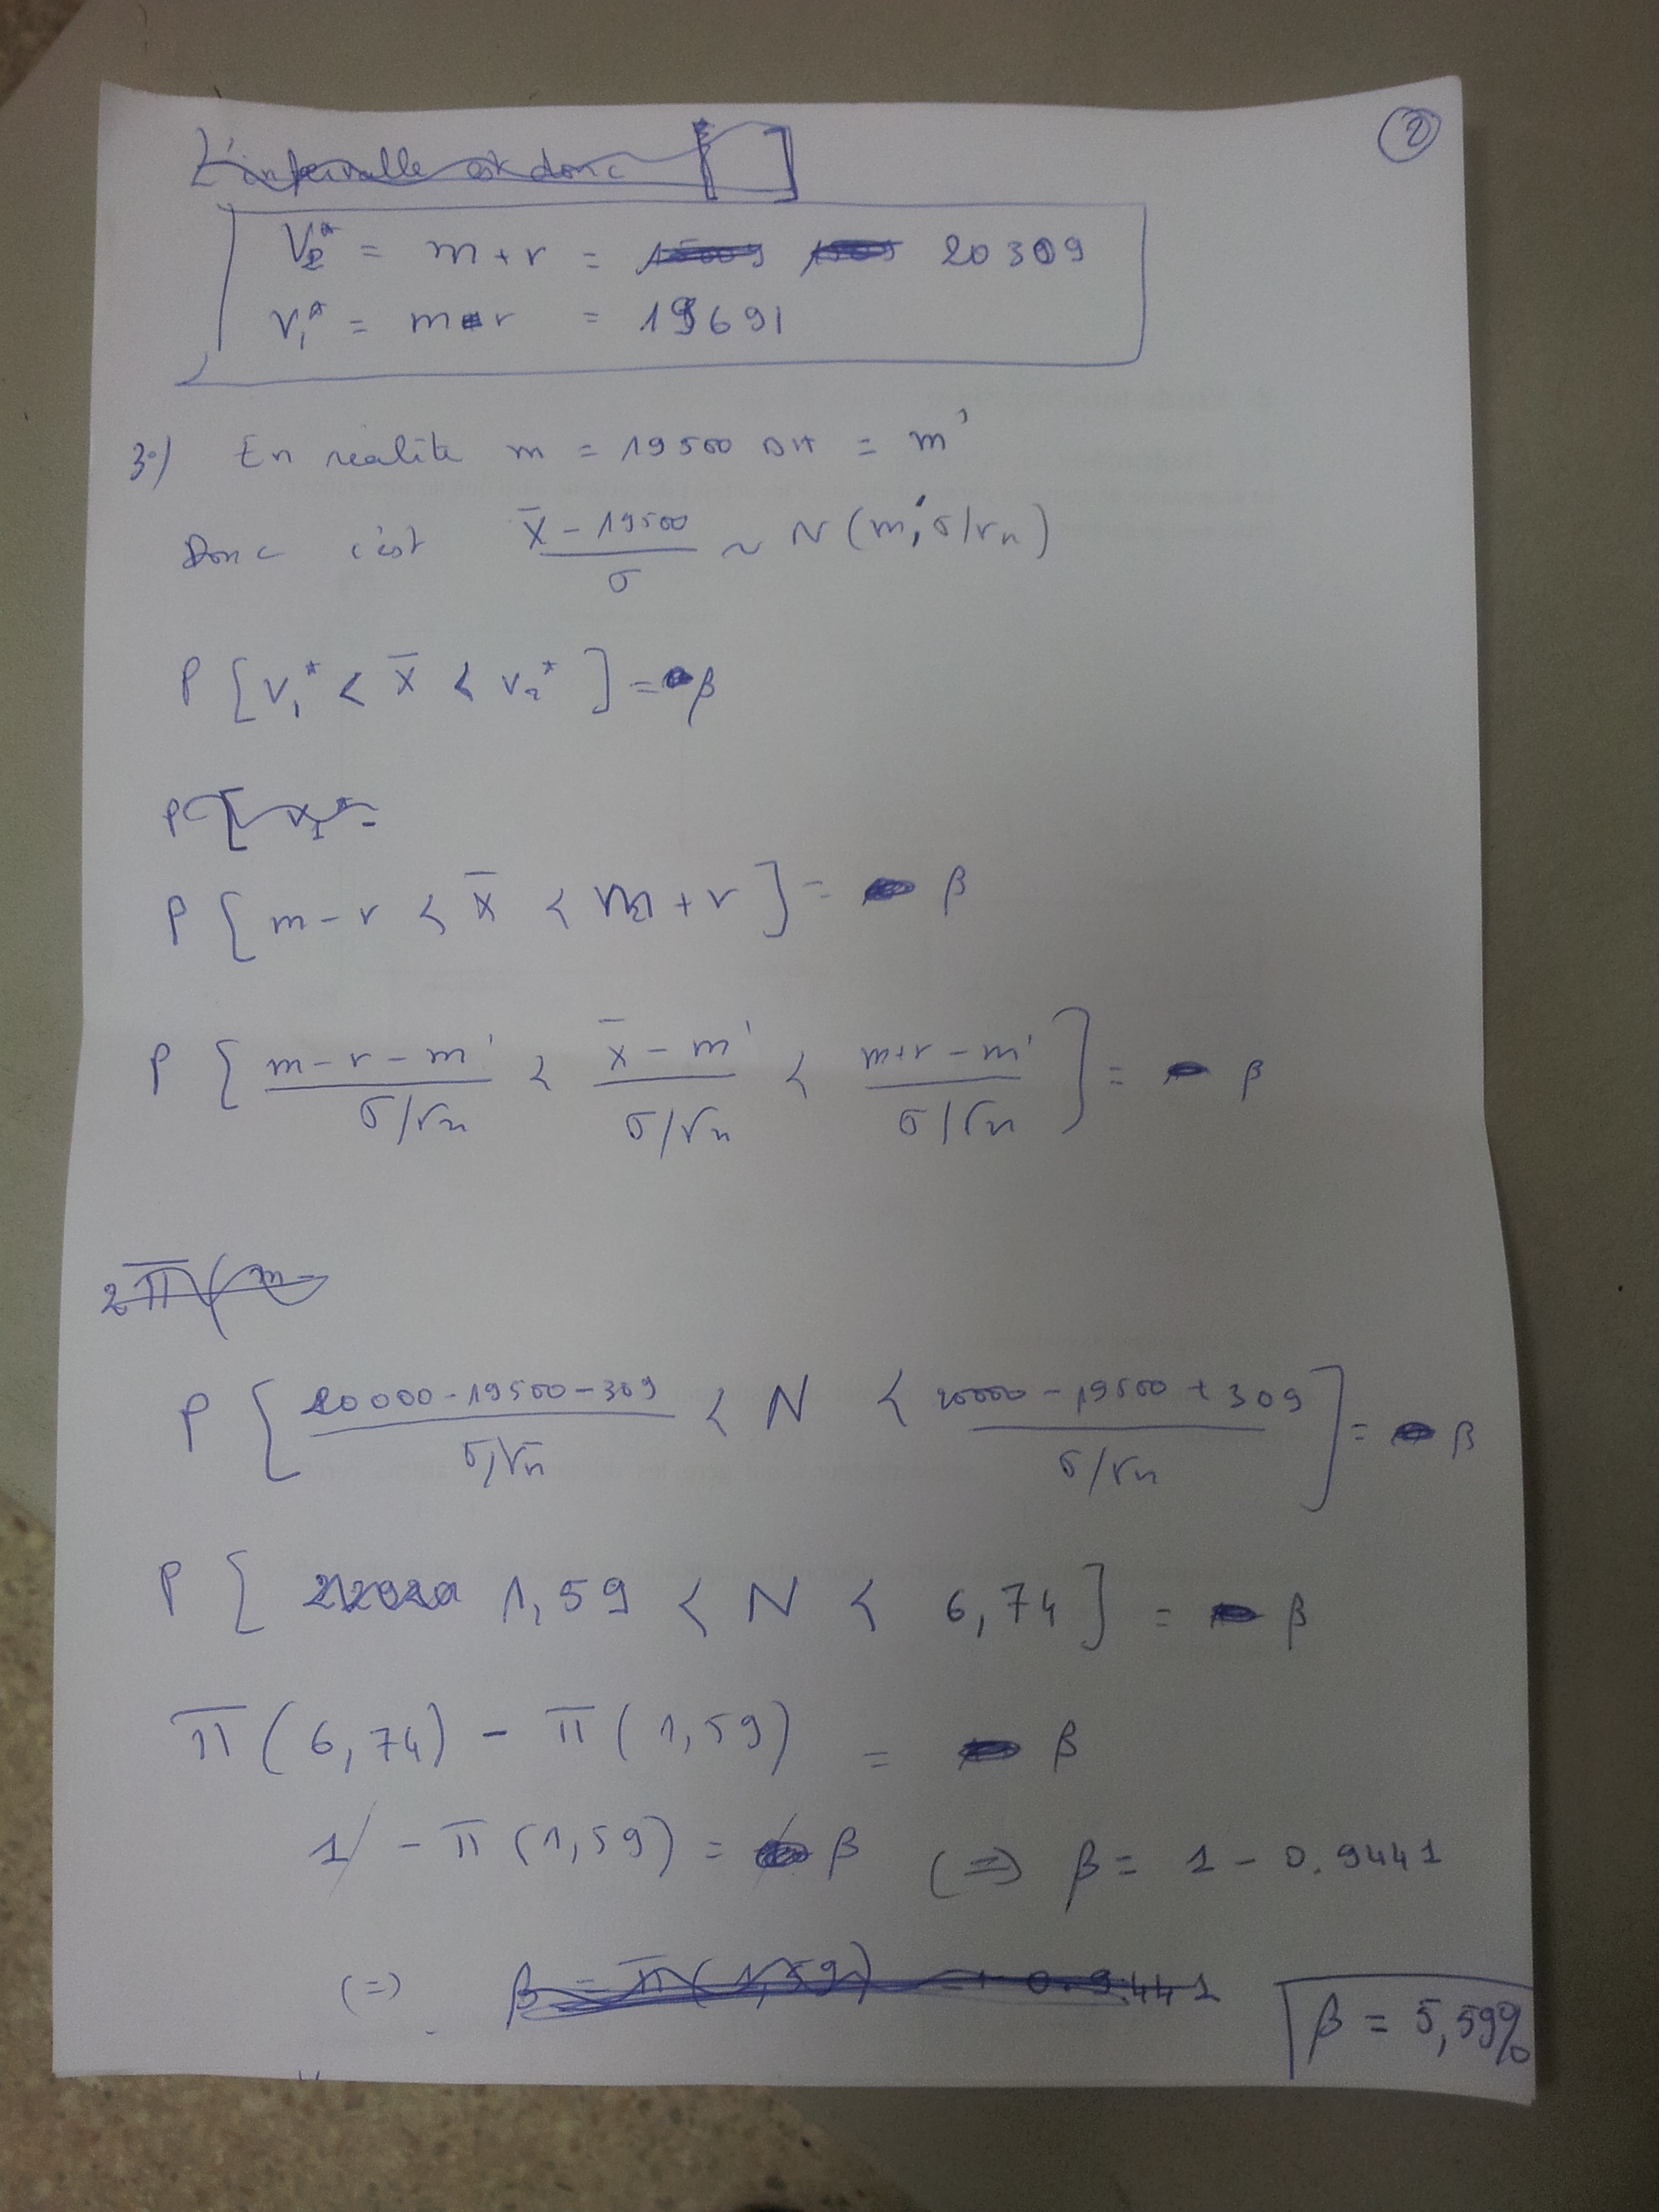 ②
L'intervalle est donc [ ]
V₂* = m + r = 20309
V₁* = m - r = 19691
3°/ En réalité m = 19500 DH = m'
Donc c'est (X̄ - 19500)/σ ~ N(m', σ/√n)
P[V₁* < X̄ < V₂*] = β
P[V₁* =
P[m - r < X̄ < m + r] = β
P[(m - r - m')/(σ/√n) < (X̄ - m')/(σ/√n) < (m + r - m')/(σ/√n)] = β
2π(m -
P[(20000 - 19500 - 309)/(σ/√n) < N < (20000 - 19500 + 309)/(σ/√n)] = β
P[1,59 < N < 6,74] = β
π(6,74) - π(1,59) = β
1 - π(1,59) = β (=) β = 1 - 0.9441
(=) β = π(1,59) 0.9441
β = 5,59%